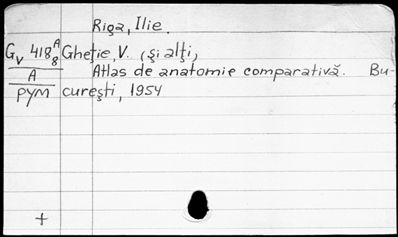 Riga, Ilie.
Gv 418 A/8 Gheţie, V. (şi alţi)
A Atlas de anatomie comparativă. Bu-
рум cureşti, 1954
+